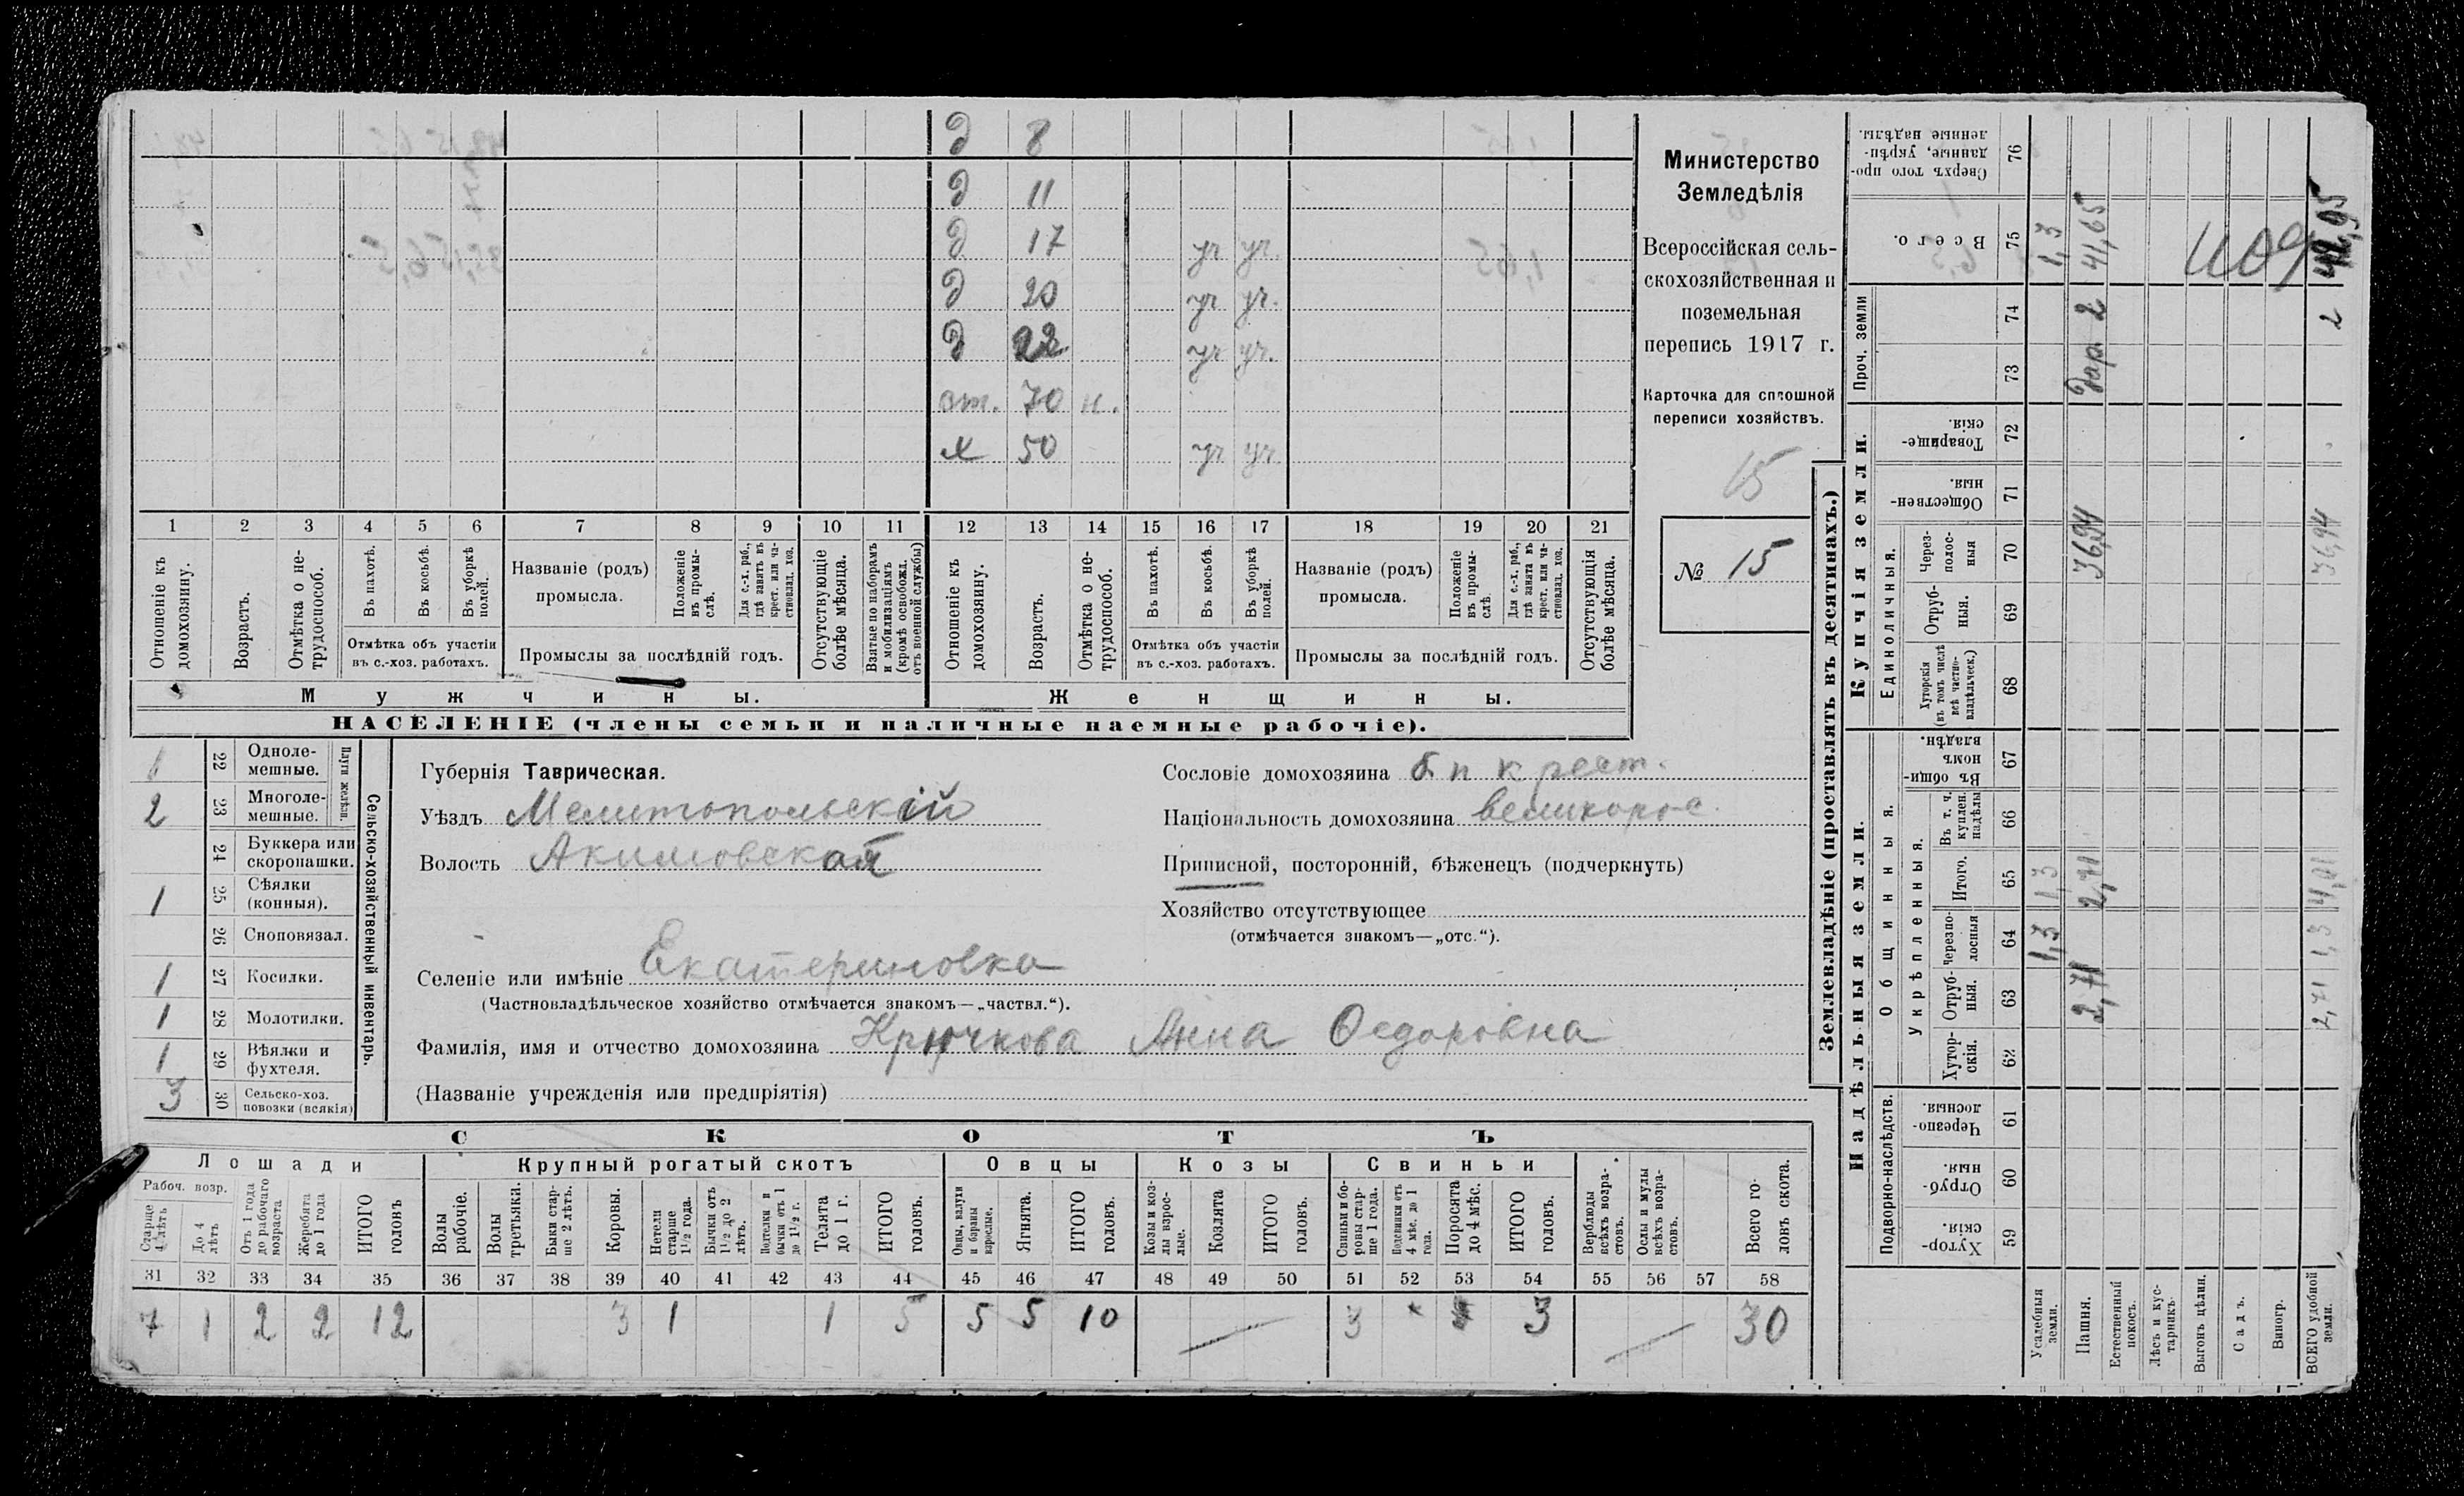 д 8
д 11
д 17 уч уч.
д 20 уч уч.
д 22 уч уч.
ст. 70 н.
х 50 уч уч
1 2 3 4 5 6 7 8 9 10 11 12 13 14 15 16 17 18 19 20 21
Отношеніе къ домохозяину.
Возрастъ.
Отмѣтка о нетрудоспособ.
Въ пахотѣ.
Въ косьбѣ.
Въ уборкѣ полей.
Отмѣтка объ участіи
въ с.-хоз. работахъ.
Названіе (родъ)
промысла.
Положеніе въ промыслѣ.
Для с.-х. раб., гдѣ занятъ въ крест. или частновлад. хоз.
Промыслы за послѣдній годъ.
Отсутствующіе болѣе мѣсяца.
Взятые по наборамъ и мобилизаціямъ (кромѣ освобожд. отъ военной службы)
Отношеніе къ домохозяину.
Возрастъ.
Отмѣтка о нетрудоспособ.
Въ пахотѣ.
Въ косьбѣ.
Въ уборкѣ полей.
Отмѣтка объ участіи
въ с.-хоз. работахъ.
Названіе (родъ)
промысла.
Положеніе въ промыслѣ.
Для с.-х. раб., гдѣ занята въ крест. или частновлад. хоз.
Промыслы за послѣдній годъ.
Отсутствующія болѣе мѣсяца.
Мужчины.
Женщины.
НАСЕЛЕНІЕ (члены семьи и наличные наемные рабочіе).
Министерство
Земледѣлія
Всероссійская сель-
скохозяйственная и
поземельная
перепись 1917 г.
Карточка для сплошной
переписи хозяйствъ.
15
№ 15
1 22 Одноле-
мешные.
2 23 Многоле-
мешные.
Плуги желѣзн.
24 Буккера или
скоропашки.
1 25 Сѣялки
(конныя).
26 Сноповязал.
1 27 Косилки.
1 28 Молотилки.
1 29 Вѣялки и
фухтеля.
3 30 Сельско-хоз.
повозки (всякія)
Сельско-хозяйственный инвентарь.
Губернія Таврическая.
Уѣздъ Мелитопольскій
Волость Акимовская
Сословіе домохозяина б п крест.
Національность домохозяина великорос.
Приписной, посторонній, бѣженецъ (подчеркнуть)
Хозяйство отсутствующее
(отмѣчается знакомъ—„отс.“).
Селеніе или имѣніе Екатериновка
(Частновладѣльческое хозяйство отмѣчается знакомъ—„частвл.“).
Фамилія, имя и отчество домохозяина Крючкова Анна Федоровна
(Названіе учрежденія или предпріятія)
СКОТЪ
Лошади
Крупный рогатый скотъ
Овцы
Козы
Свиньи
Рабоч. возр.
Старше 4 лѣтъ
До 4 лѣтъ
Отъ 1 года до рабочаго возраста
Жеребята до 1 года
ИТОГО головъ
Волы рабочіе.
Волы третьяки.
Быки старше 2 лѣтъ.
Коровы.
Нетели старше 1½ года.
Бычки отъ 1½ до 2 лѣтъ.
Подтелки и бычки отъ 1 до 1½ г.
Телята до 1 г.
ИТОГО головъ.
Овцы, валухи и бараны взрослые.
Ягнята.
ИТОГО головъ.
Козы и козлы взрослые.
Козлята
ИТОГО головъ.
Свиньи и боровы старше 1 года.
Подсвинки отъ 4 мѣс. до 1 года.
Поросята до 4 мѣс.
ИТОГО головъ.
Верблюды всѣхъ возрастовъ.
Ослы и мулы всѣхъ возрастовъ.
Всего головъ скота.
31 32 33 34 35 36 37 38 39 40 41 42 43 44 45 46 47 48 49 50 51 52 53 54 55 56 57 58
7 1 2 2 12 3 1 1 5 5 5 10 3 3 30
Землевладѣніе (проставлять въ десятинахъ.)
Надѣльныя земли.
Купчія земли.
Проч. земли
Подворно-наслѣдств.
Общинныя.
Укрѣпленныя.
Единоличныя.
Хутор-
скія. 59
Отруб-
ныя. 60
Черезпо-
лосныя. 61
Хутор-
скія. 62
Отруб-
ныя. 63
Черезпо-
лосныя 64
Итого. 65
Въ т. ч. куплен. надѣлы 66
Въ общин-
номъ
владѣн. 67
Хуторскія (въ томъ числѣ всѣ частно-владѣльческ.) 68
Отруб-
ныя. 69
Через-
полос-
ныя 70
Обществен-
ныя. 71
Товарище-
скія. 72
73
74
Всего. 75
Сверхъ того про-
данные, укрѣп-
ленные надѣлы. 76
Усадебныя земли. 1,3 1,3 1,3
Пашня. 2,71 2,71 36,94 Дар. 2 41,65
Естественный покосъ.
Лѣсъ и кустарникъ
Выгонъ цѣлин.
Садъ.
Виногр.
ВСЕГО удобной земли. 2,71 1,3 4,01 36,94 2